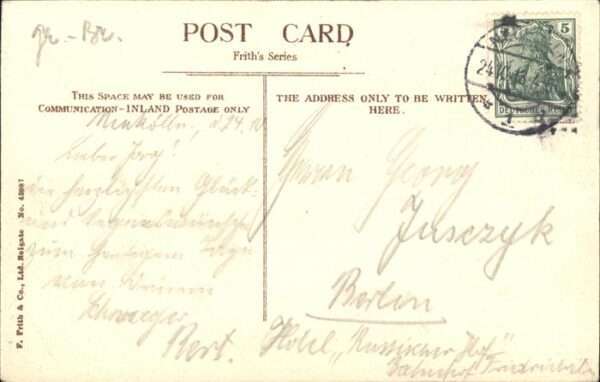 Gr.-Br.
POST CARD
Frith's Series
THIS SPACE MAY BE USED FOR
COMMUNICATION-INLAND POSTAGE ONLY
THE ADDRESS ONLY TO BE WRITTEN
HERE.
5
DEUTSCHES REICH
24
Neukölln, d. 24.
Lieber Georg!
die herzlichsten Glück-
und Segenswünsche
zum heutigen Tage
von Deinem
Schwager
Bert.
Herrn Georg
Jusczyk
Berlin
Hotel "Russischer Hof"
Bahnhof Friedrichstr.
F. Frith & Co., Ltd. Reigate No. 43987